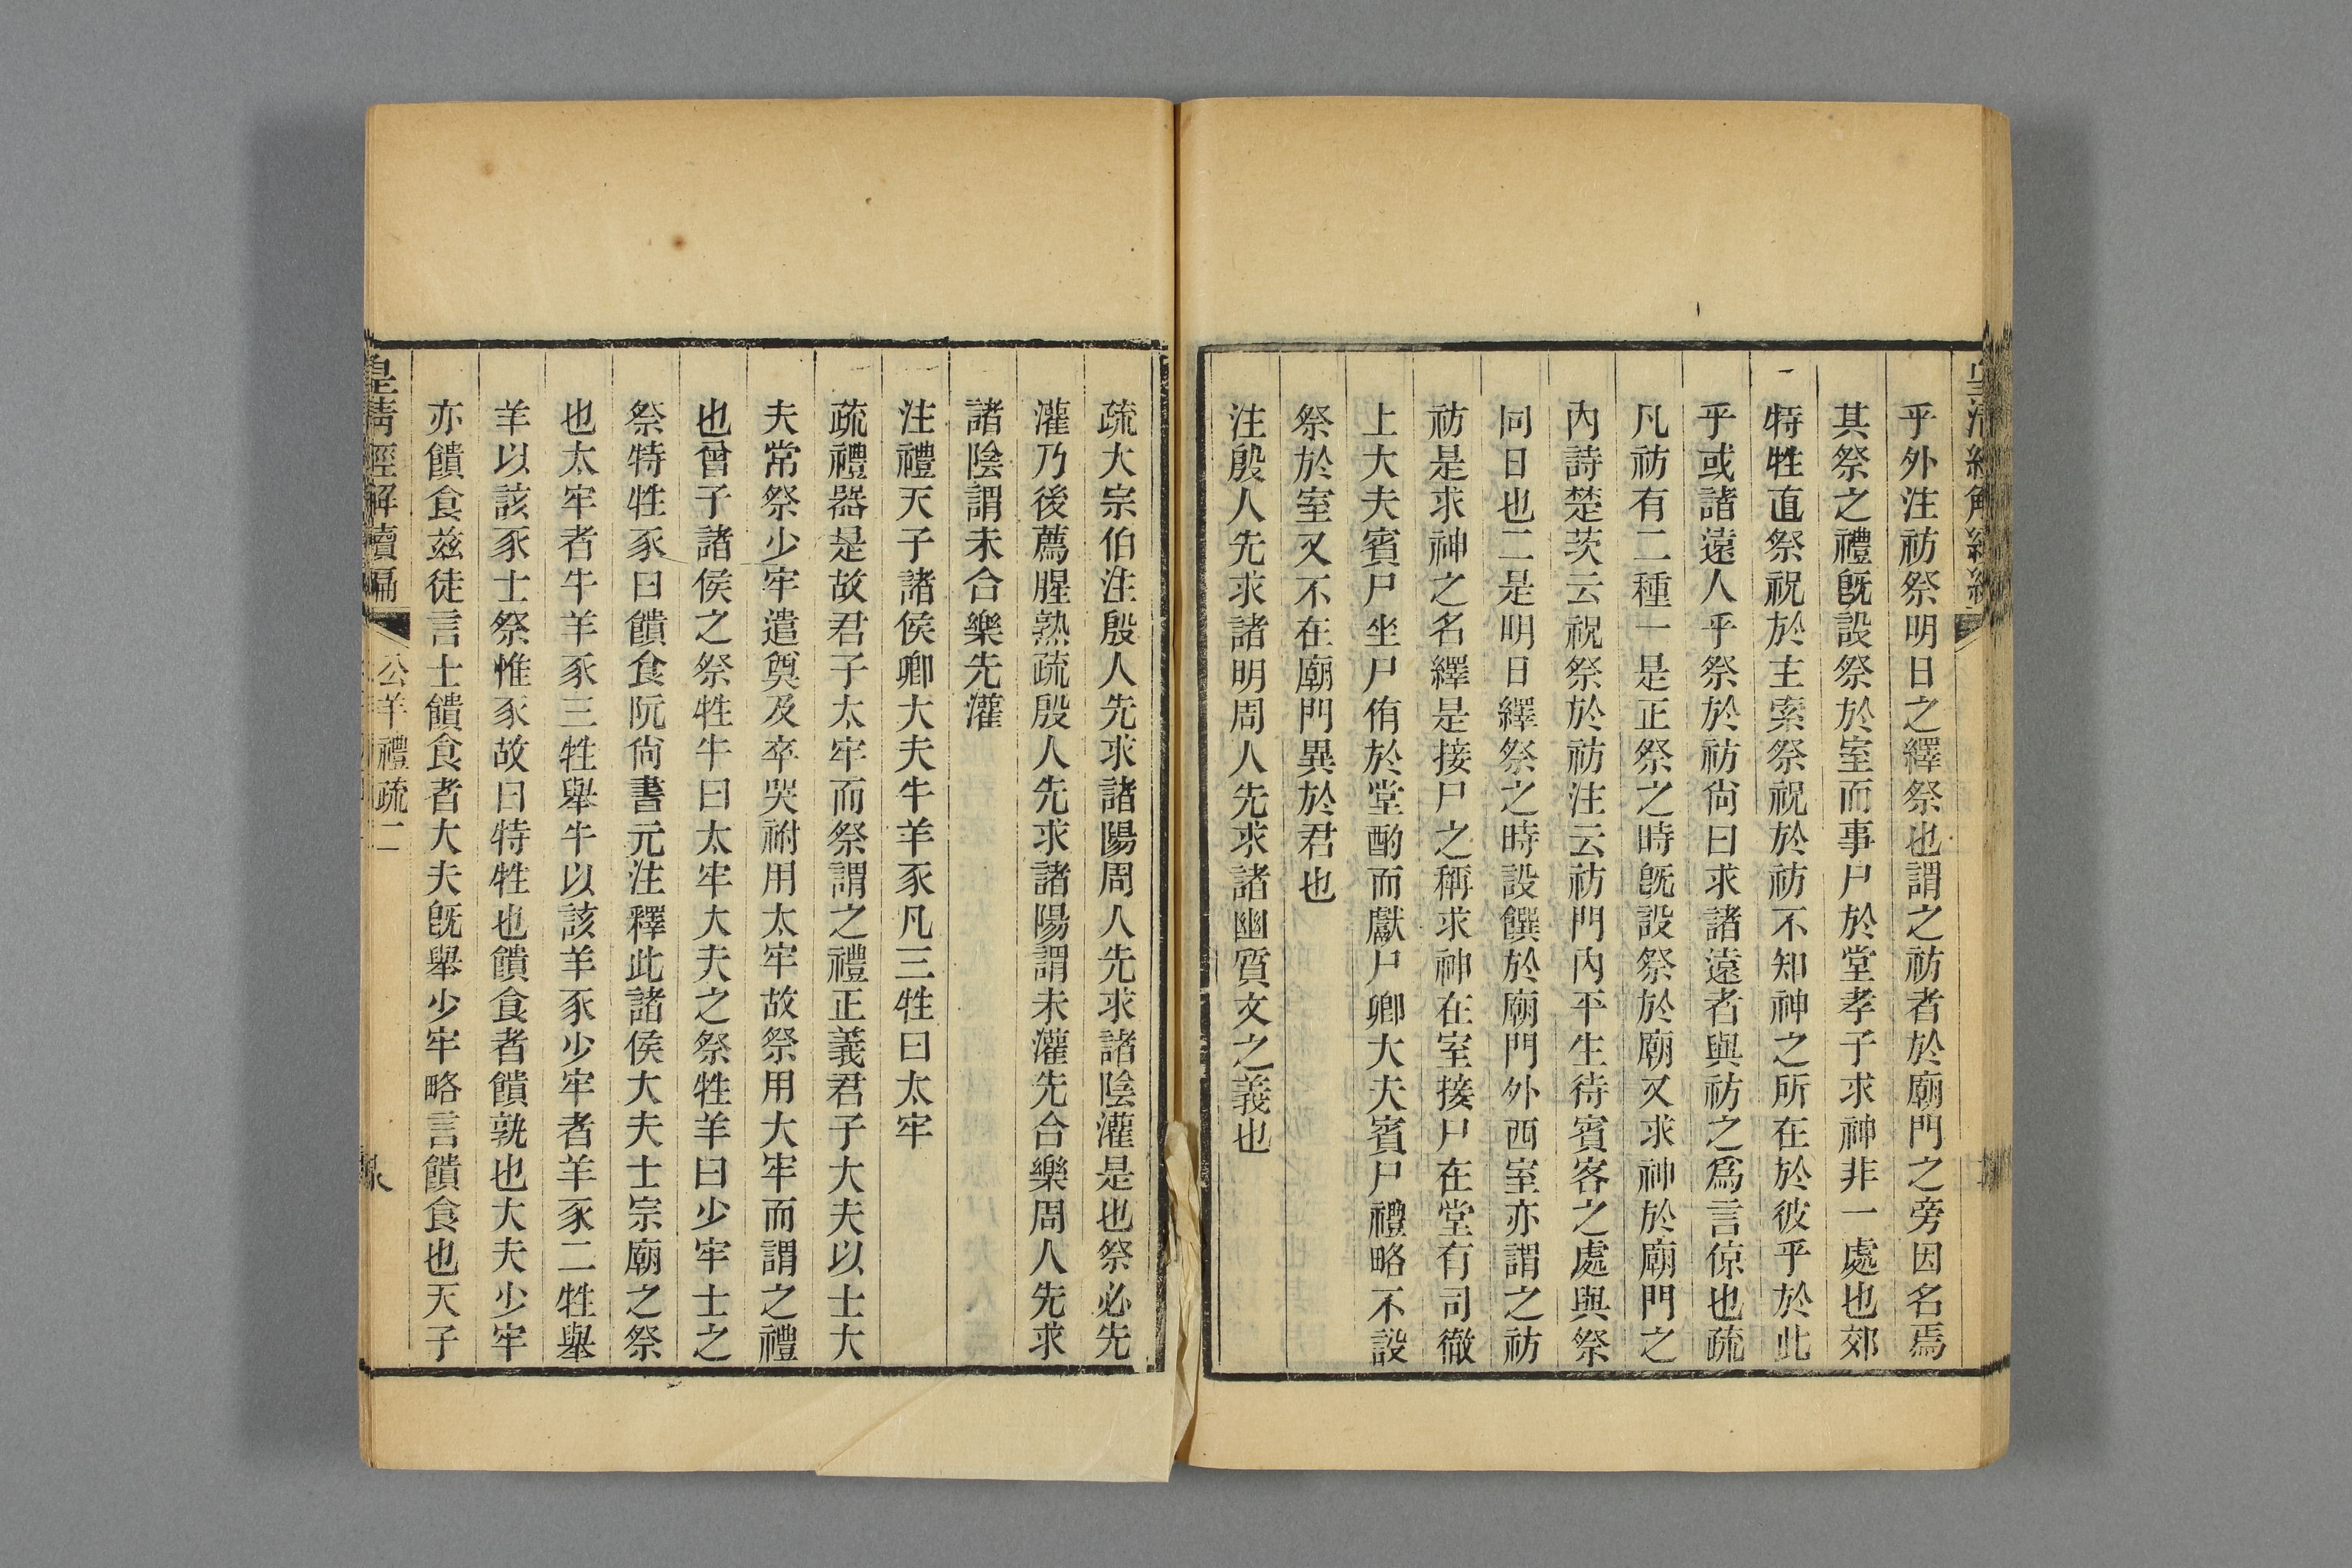 乎外注祊祭明日之繹祭也謂之祊者於廟門之旁因名焉
其祭之禮旣設祭於室而事尸於堂孝子求神非一處也郊
特牲直祭祝於主索祭祝於祊不知神之所在於彼乎於此
乎或諸遠人乎祭於祊尙曰求諸遠者與祊之爲言倞也疏
凡祊有二種一是正祭之時旣設祭於廟又求神於廟門之
內詩楚茨云祝祭於祊注云祊門內平生待賓客之處與祭
同日也二是明日繹祭之時設饌於廟門外西室亦謂之祊
祊是求神之名繹是接尸之稱求神在室接尸在堂有司徹
上大夫賓尸坐尸侑於堂酌而獻尸卿大夫賓尸禮略不設
祭於室又不在廟門異於君也
注殷人先求諸明周人先求諸幽質文之義也
疏大宗伯注殷人先求諸陽周人先求諸陰灌是也祭必先
灌乃後薦腥熟疏殷人先求諸陽謂未灌先合樂周人先求
諸陰謂未合樂先灌
注禮天子諸侯卿大夫牛羊豕凡三牲曰太牢
疏禮器是故君子太牢而祭謂之禮正義君子大夫以士大
夫常祭少牢遣奠及卒哭祔用太牢故祭用大牢而謂之禮
也曾子諸侯之祭牲牛曰太牢大夫之祭牲羊曰少牢士之
祭特牲豕曰饋食阮尙書元注釋此諸侯大夫士宗廟之祭
也太牢者牛羊豕三牲舉牛以該羊豕少牢者羊豕二牲舉
羊以該豕士祭惟豕故曰特牲也饋食者饋孰也大夫少牢
亦饋食兹徒言士饋食者大夫旣舉少牢略言饋食也天子
皇淸經解續編
公羊禮疏二